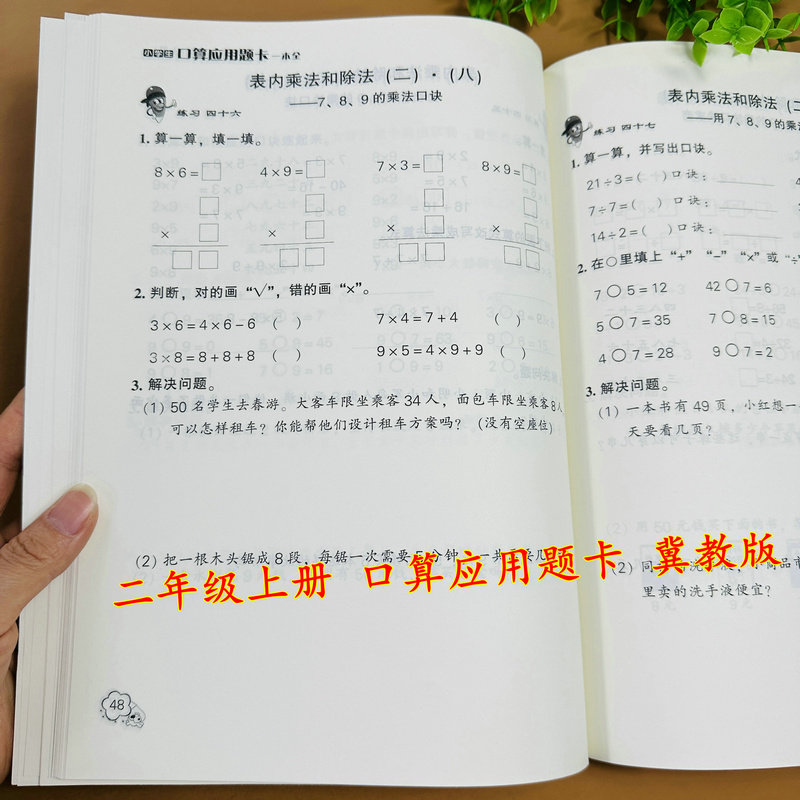 小学生 口算应用题卡 一本全
表内乘法和除法（二）·（八）
——7、8、9的乘法口诀
练习 四十六
1. 算一算，填一填。
8×6=□ 4×9=□ 7×3=□ 8×9=□
× □ × □ × □ × □
2. 判断，对的画“√”，错的画“×”。
3×6=4×6-6 （ ） 7×4=7+4 （ ）
3×8=8+8+8 （ ） 9×5=4×9+9 （ ）
3. 解决问题。
(1) 50名学生去春游。大客车限坐乘客34人，面包车限坐乘客8人
可以怎样租车？你能帮他们设计租车方案吗？（没有空座位）
(2) 把一根木头锯成8段，每锯一次需要5分钟，一共需要几
48
表内乘法和除法（二
——用7、8、9的乘法
练习 四十七
1. 算一算，并写出口诀。
21÷3=（ ）口诀：
7÷7=（ ）口诀：
14÷2=（ ）口诀：
2. 在○里填上“+”“-”“×”或“÷
7○5=12 42○7=6
5○7=35 7○8=15
4○7=28 9○7=2
3. 解决问题。
(1) 一本书有49页，小红想一
天要看几页？
(2) 同
里卖的洗手液便宜？
二年级上册 口算应用题卡 冀教版